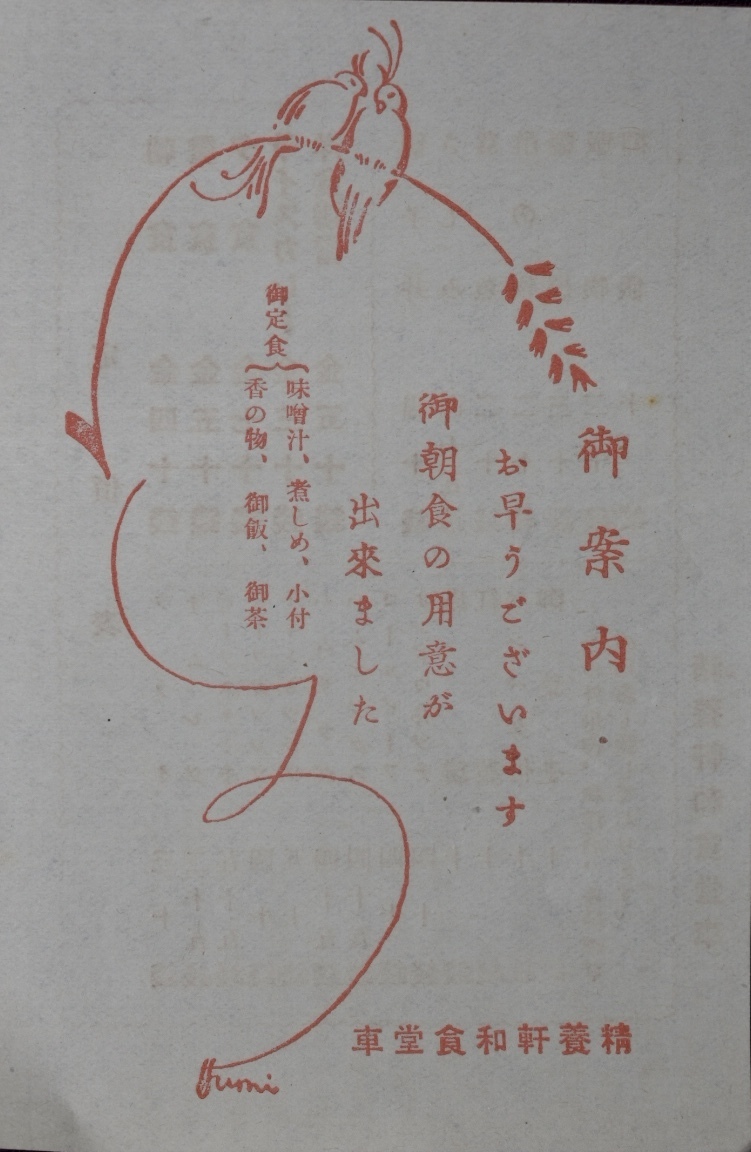 御案内
お早うございます
御朝食の用意が
出來ました
御定食
味噌汁、煮しめ、小付
香の物、御飯、御茶
精養軒和食堂車